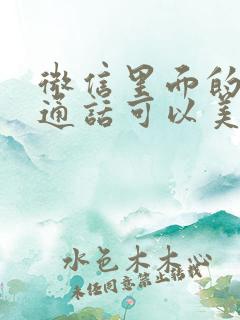 微信里面的
通话可以美
水色木木沁
未经同意禁止转载